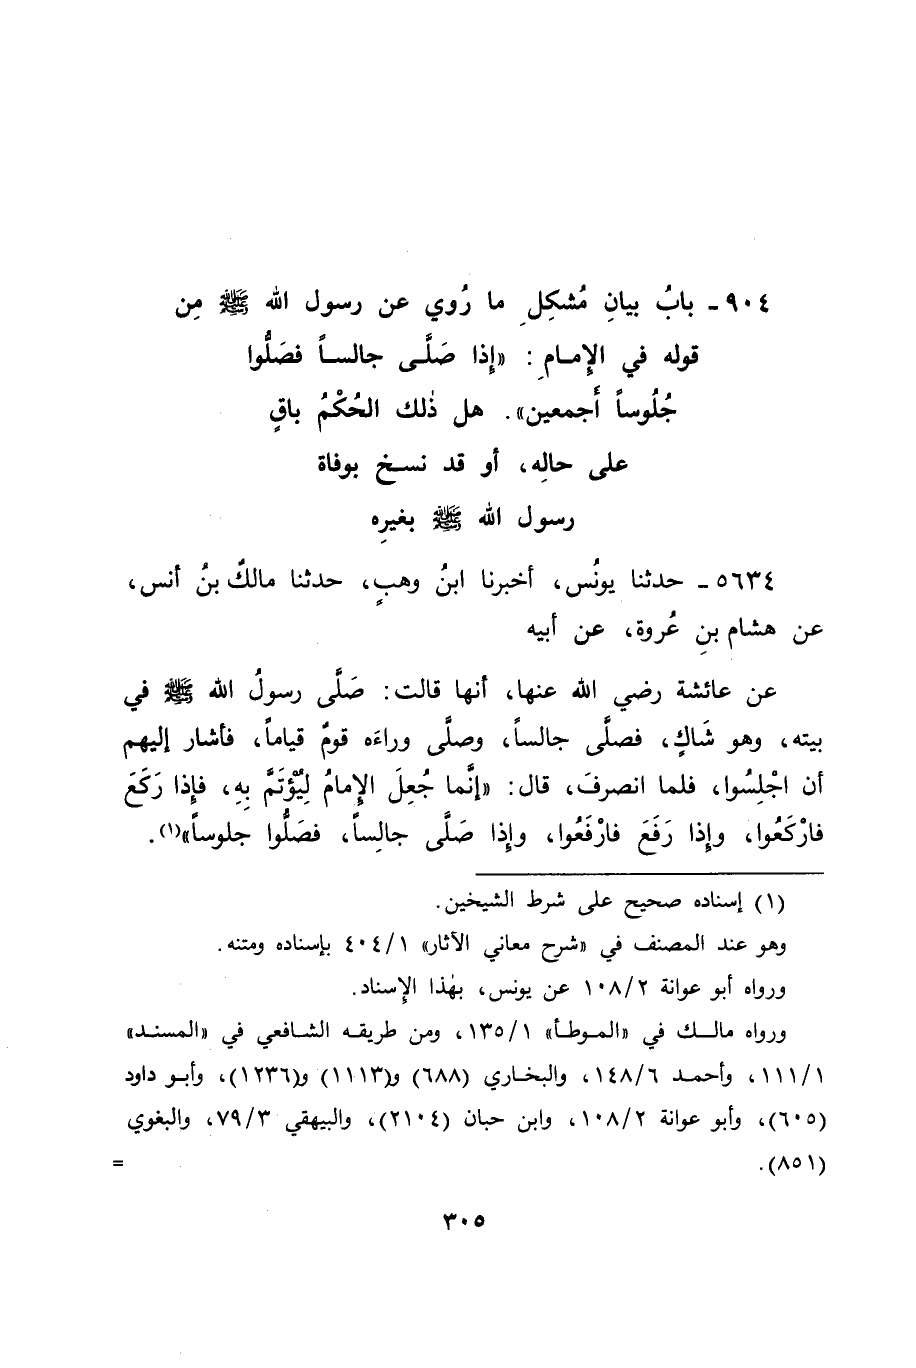 ٩٠٤ ـ بابُ بيانِ مُشكِلِ ما رُوي عن رسول الله ﷺ مِن
قوله في الإمامِ: «إذا صَلَّى جالساً فصَلُّوا
جُلُوساً أجمعين». هل ذٰلك الحُكْمُ باقٍ
على حالِه، أو قد نسخ بوفاة
رسول الله ﷺ بغيرِه
٥٦٣٤ ـ حدثنا يونُس، أخبرنا ابنُ وهبٍ، حدثنا مالكُ بنُ أنس،
عن هشام بنِ عُروة، عن أبيه
عن عائشة رضي الله عنها، أنها قالت: صَلَّى رسولُ الله ﷺ في
بيته، وهو شَاكٍ، فصلَّى جالساً، وصلَّى وراءَه قومٌ قياماً، فأشار إليهم
أن اجْلِسُوا، فلما انصرفَ، قال: «إنَّما جُعِلَ الإِمامُ لِيُؤْتَمَّ بِهِ، فإذا رَكَعَ
فارْكَعُوا، وإذا رَفَعَ فارْفَعُوا، وإذا صَلَّى جالِساً، فصَلُّوا جلوساً»(١).
(١) إسناده صحيح على شرط الشيخين.
وهو عند المصنف في «شرح معاني الآثار» ٤٠٤/١ بإسناده ومتنه.
ورواه أبو عوانة ١٠٨/٢ عن يونس، بهٰذا الإِسناد.
ورواه مالك في «الموطأ» ١٣٥/١، ومن طريقه الشافعي في «المسند»
١١١/١، وأحمد ١٤٨/٦، والبخاري (٦٨٨) و(١١١٣) و(١٢٣٦)، وأبو داود
(٦٠٥)، وأبو عوانة ١٠٨/٢، وابن حبان (٢١٠٤)، والبيهقي ٧٩/٣، والبغوي
(٨٥١). =
٣٠٥